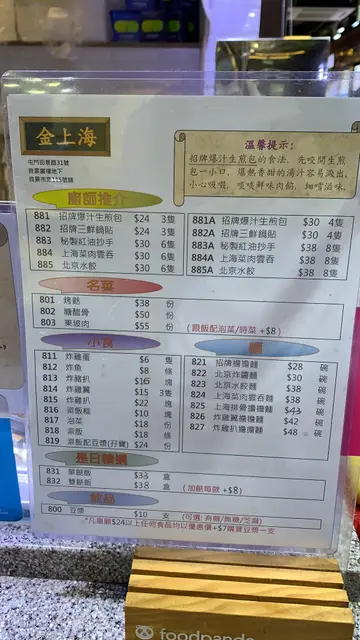 金上海
屯門田景路31號
良景廣場地下
良景市集
溫馨提示:
招牌爆汁生煎包的食法, 先咬開生煎
包一小口, 還熱香甜的湯汁容易溢出,
小心吸啜, 啖啖鮮味肉餡, 細嚐滋味.
廚師推介
881 招牌爆汁生煎包 $24 3隻
882 招牌三鮮鍋貼 $24 3隻
883 秘製紅油抄手 $30 6隻
884 上海菜肉雲吞 $30 6隻
885 北京水餃 $30 6隻
881A 招牌爆汁生煎包 $30 4隻
882A 招牌三鮮鍋貼 $30 4隻
883A 秘製紅油抄手 $38 8隻
884A 上海菜肉雲吞 $38 8隻
885A 北京水餃 $38 8隻
名菜
801 烤麩 $38 份
802 糖醋骨 $50 份
803 東坡肉 $55 份
(跟飯配泡菜/時菜 +$8)
小食
811 炸雞蛋 $6 隻
812 炸魚 $8 塊
813 炸豬扒 $15 塊
814 炸雞翼 $15 3隻
815 炸雞扒 $22 塊
816 粢飯糕 $10 塊
817 泡菜 $18 份
818 粢飯 $18 條
819 粢飯配豆漿(孖寶) $24 份
麵
821 招牌擔擔麵 $28 碗
822 北京炸醬麵 $30 碗
823 北京水餃麵 $38 碗
824 上海菜肉雲吞麵 $38 碗
825 上海排骨擔擔麵 $43 碗
826 炸雞翼擔擔麵 $42 碗
827 炸雞扒擔擔麵 $48 碗
是日精選
831 單餸飯 $33 盒
832 雙餸飯 $38 盒
(加餸每款 +$8)
飲品
800 豆漿 $10 支 (可選: 有糖/無糖/芝麻)
*凡惠顧$24以上任何食品均以優惠價+$7購買豆漿一支
foodpanda